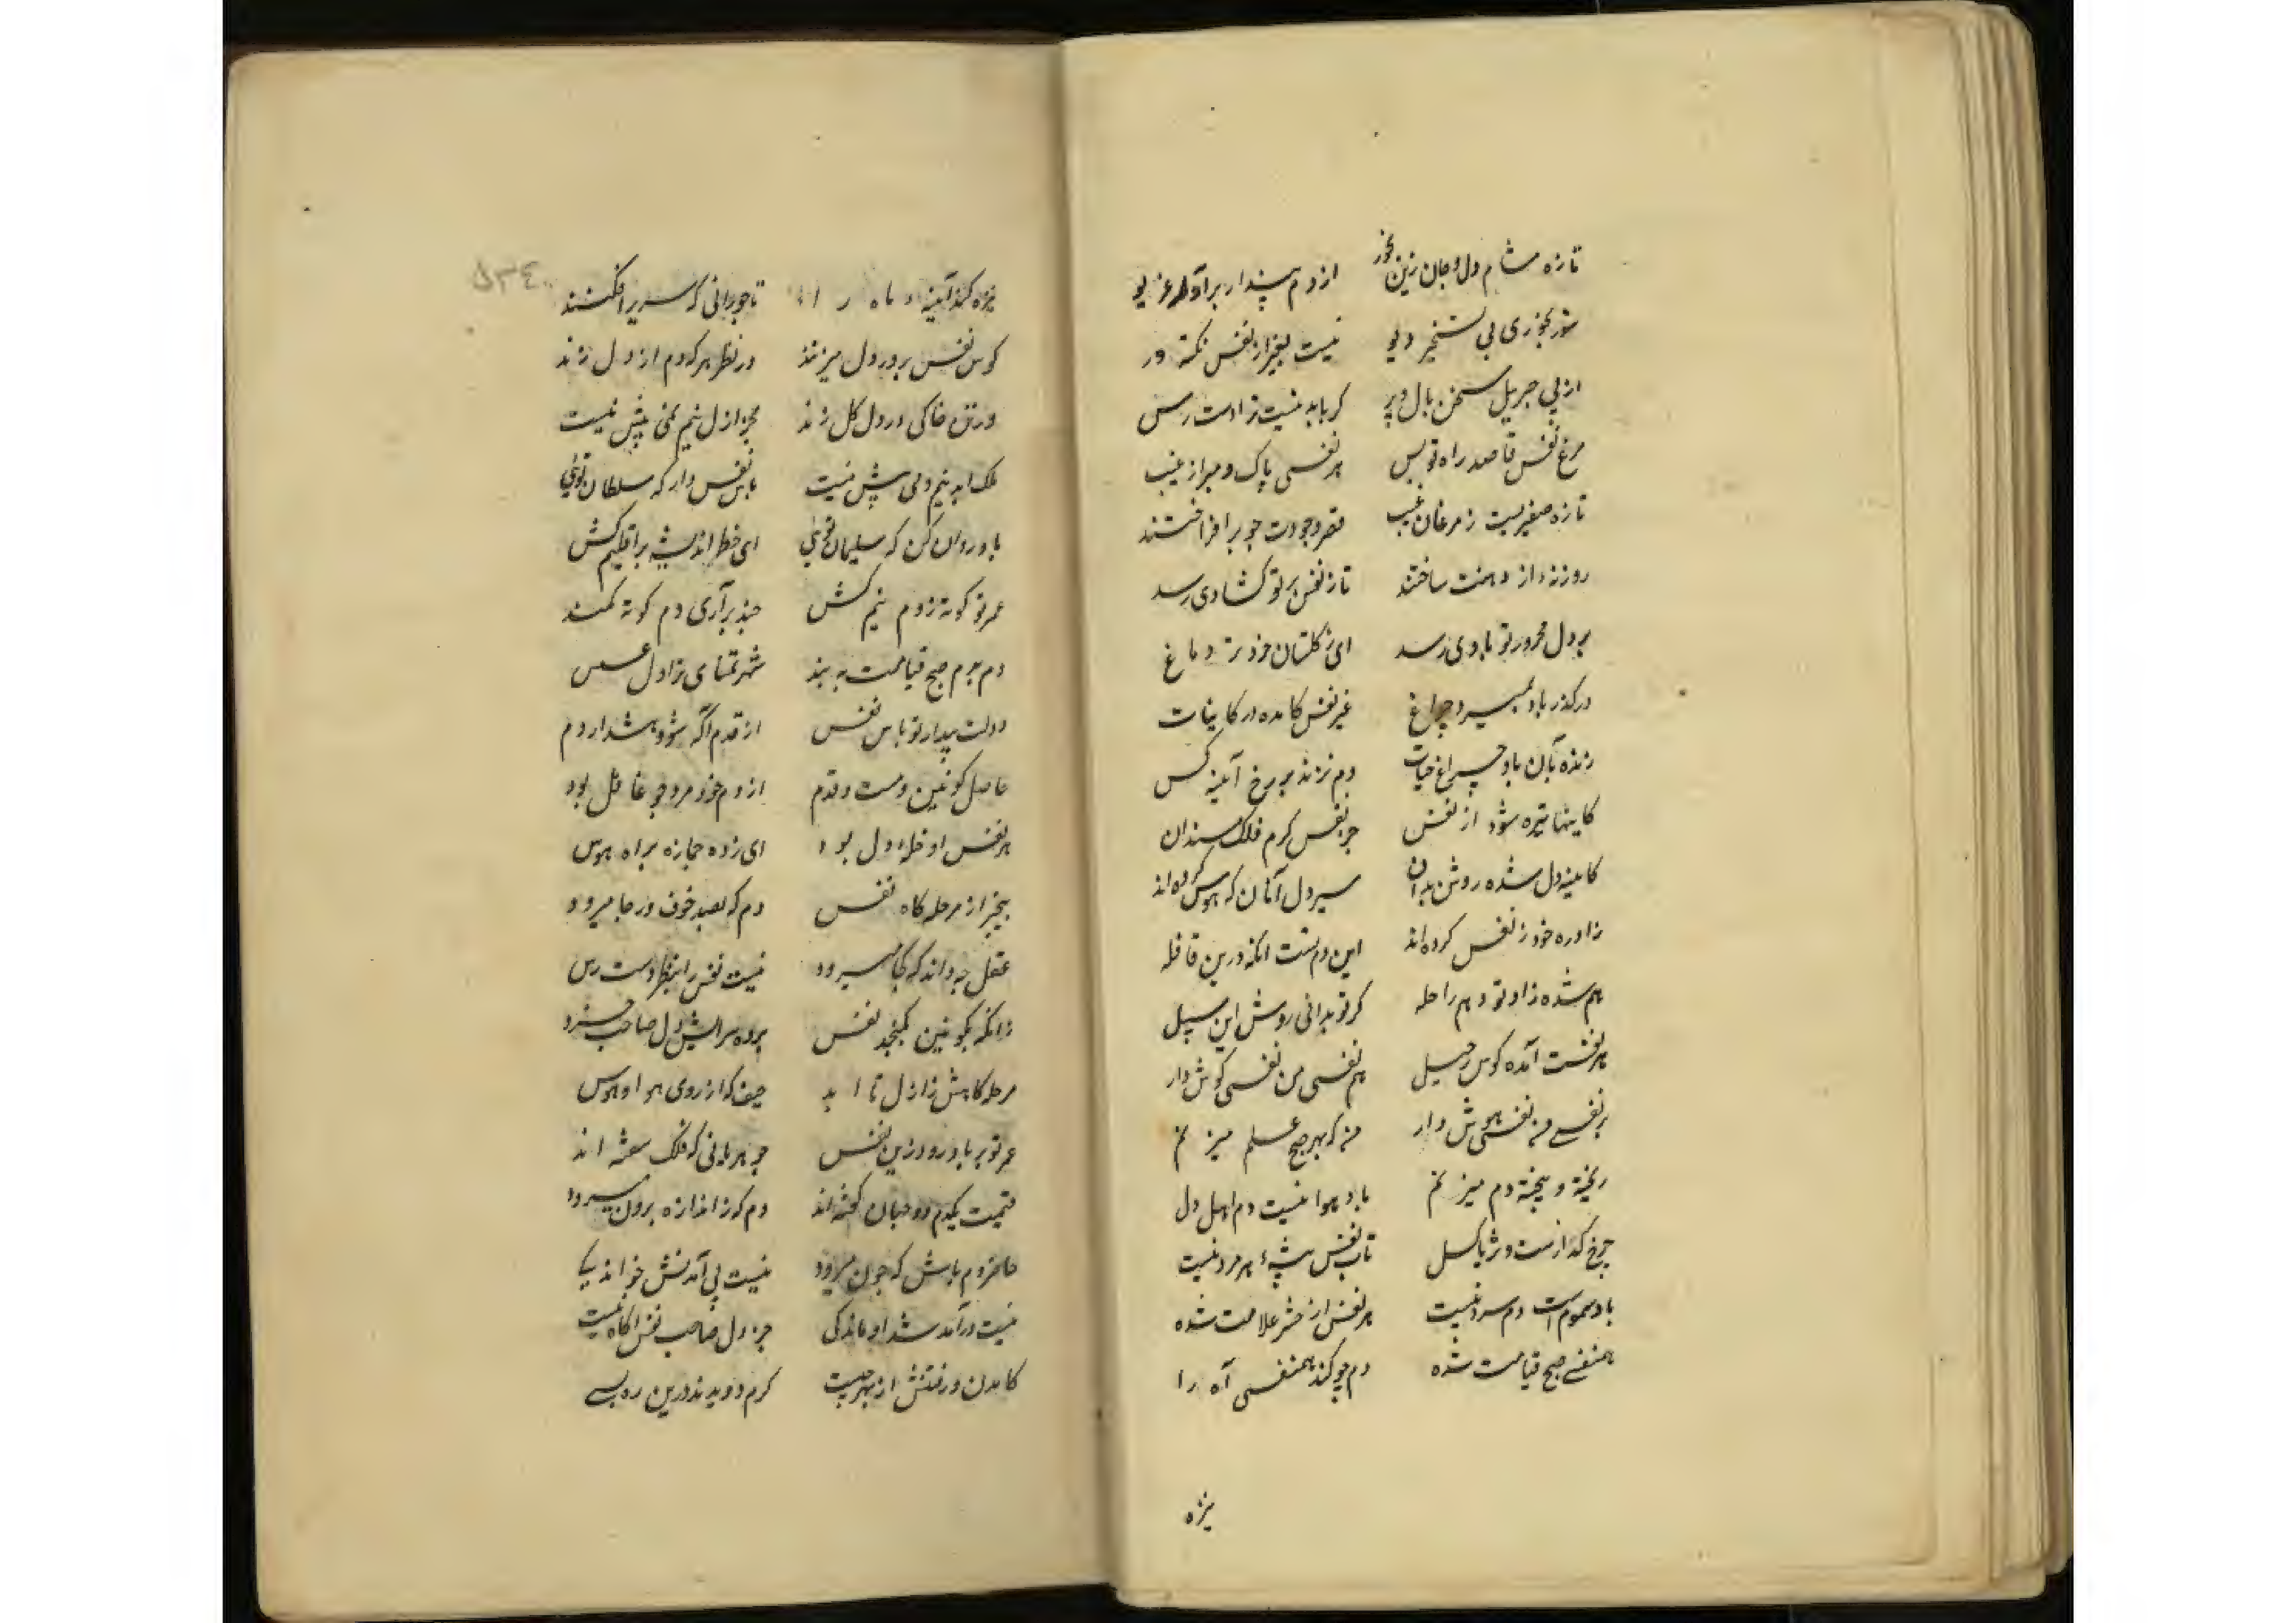 تازه مشام دل و جان زین بخور ازدم پندار برآواره غریو
شور بخوری بی تسخیر دیو نیست بغیر از نفس نکته ور
از پی جبریل سخن بال و پر کر باید نیست زادت رس
مرغ نفس قاصد راه تو بس هر نفسی پاک و مبرا ز عیب
تازه صفیریست ز مرغان غیب قصر وجودت چو برافراختند
روزنه از دهنت ساختند تا ز نفس بر تو کشادی رسد
بر دل محرور تو بادی رسد ای ز کلستان خرد تر دماغ
در کذر باد بمیرد چراغ غیر نفس کامده در کاینات
زنده بآن باد چراغ حیات دم نزند بر رخ آیینه کس
کاینها تیره شود از نفس جز نفس کرم فلک مسندان
کاینه دل شده روشن بدان سیر دل آنان که هوس کرده اند
زاد ره خود ز نفس کرده اند این دم تست آنکه درین قافله
هم شده زاد تو و هم راحله کر تو بدانی روش این سبیل
هر نفست آمده کوس رحیل هم نفسی من نفسی کوش دار
بر نفسی منه نفسی هوش دار من که بهر صبح علم میزنم
ریخته و بیخته دم میزنم باد هوا نیست دم اهل دل
چرخ کدازست و ثریا کسل تاب نفس پیشهٔ هر مرد نیست
باد سموم است دم سرد نیست هر نفس از حشر علامت شده
همنفس صبح قیامت شده دم چو کند همنفسی آه را
تیره
تیره کند آینه ماه را تاجورانی که سریر افکنند
کوس نفس بر در دل میزنند در نظر هر که دم از دل زند
در تن خاکی در دل کل زند مجز ازل نیم نمی بیش نیست
ملک ابد نیم دمی بیش نیست پاس نفس دار که سلطان تویی
باد روان کن که سلیمان تویی ای خط اندیشه بر اقلیم کش
عمر تو کوته ز دم نیم کش چند برآری دم کوته کمند
دم بدم صبح قیامت به بند شهر تمنای ترا دل عسس
دولت بیدار تو پاس نفس از قدم آکه شو و هشدار دم
حاصل کونین دمست و قدم از دم خود مرد چو غافل بود
هر نفس او خلهٔ دل بود ای زده جمازه براه هوس
بیخبر از مرحله کاه نفس دم که بصد خوف و رجا میرود
عقل چه داند که کجا میرود نیست نفس را بنظر دست رس
زانکه بکونین نکنجد نفس پرده سرایش دل صاحب خرد
مرحله کاهش ز ازل تا ابد حیف که از روی هوا و هوس
عمر تو بر باد رود زین نفس جوهریانی که فلک سفته اند
قیمت یکدم دو جهان کفته اند دم که ز اندازه برون میرود
حاضر دم باش که چون میرود نیست پی آمدنش خواندنی
نیست در آمد شد او ماندکی جز دل صاحب نفس آکاه نیست
کامدن و رفتنش از بهر چیست کرم دویدند درین ره بسی